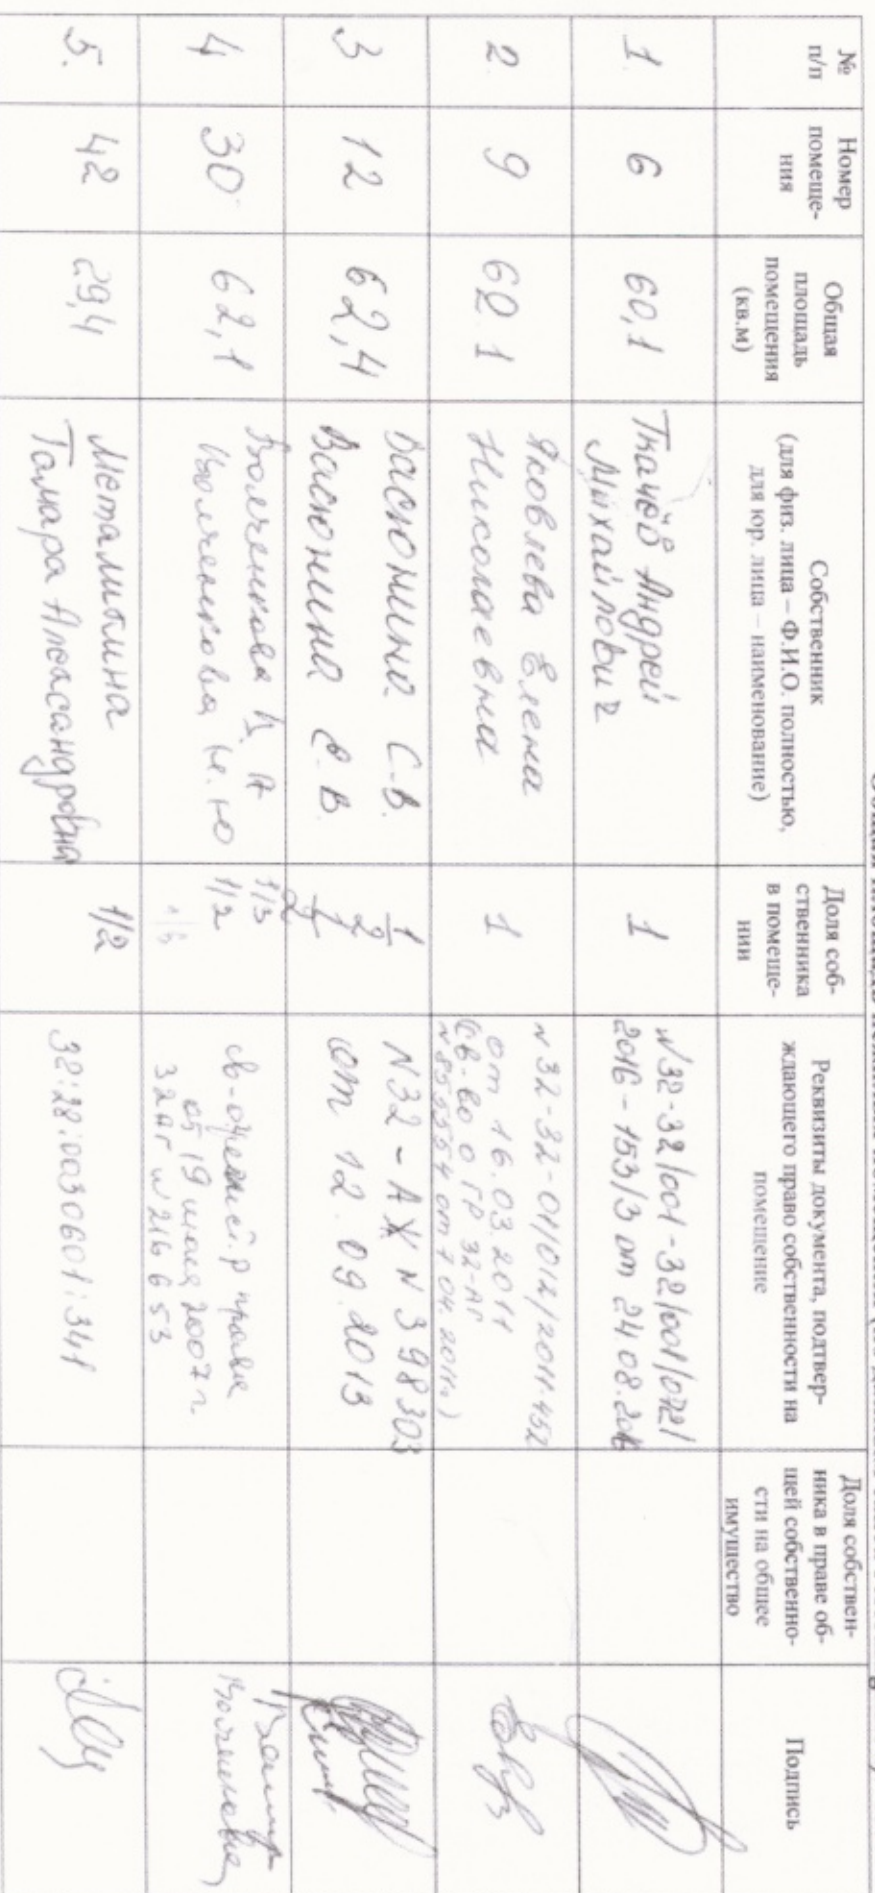 №
п/п
Номер
помеще-
ния
Общая
площадь
помещения
(кв.м)
Собственник
(для физ. лица – Ф.И.О. полностью,
для юр. лица – наименование)
Доля соб-
ственника
в помеще-
нии
Реквизиты документа, подтвер-
ждающего право собственности на
помещение
Доля собствен-
ника в праве об-
щей собственно-
сти на общее
имущество
Подпись
1.
6
60,1
Ткачёв Андрей
Михайлович
1
N32-32/001-32/001/072/
2016-153/3 от 24.08.2016
2.
9
62.1
Яковлева Елена
Николаевна
1
N 32-32-01/012/2011-452
от 16.03.2011
(св-во о ГР 32-АГ
от 7.04.2011г)
3
12
62,4
Васюнина С.В.
Васюнина Е.В.
1/2
1/2
N32-АЖ N 398303
от 12.09.2013
4
30
62,1
Волченкова
Волченкова
1/3
1/2
1/3
права
19 2007г.
32АГ N 216653
5.
42
29,4
Металкина
Тамара Александровна
1/2
32:28:0030601:341